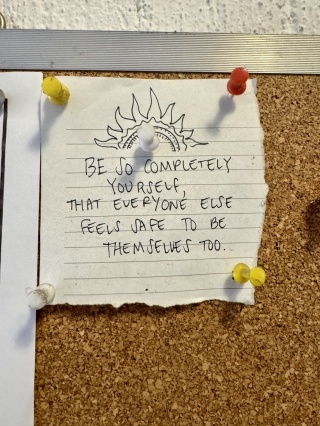 BE SO COMPLETELY
YOURSELF,
THAT EVERYONE ELSE
FEELS SAFE TO BE
THEMSELVES TOO..